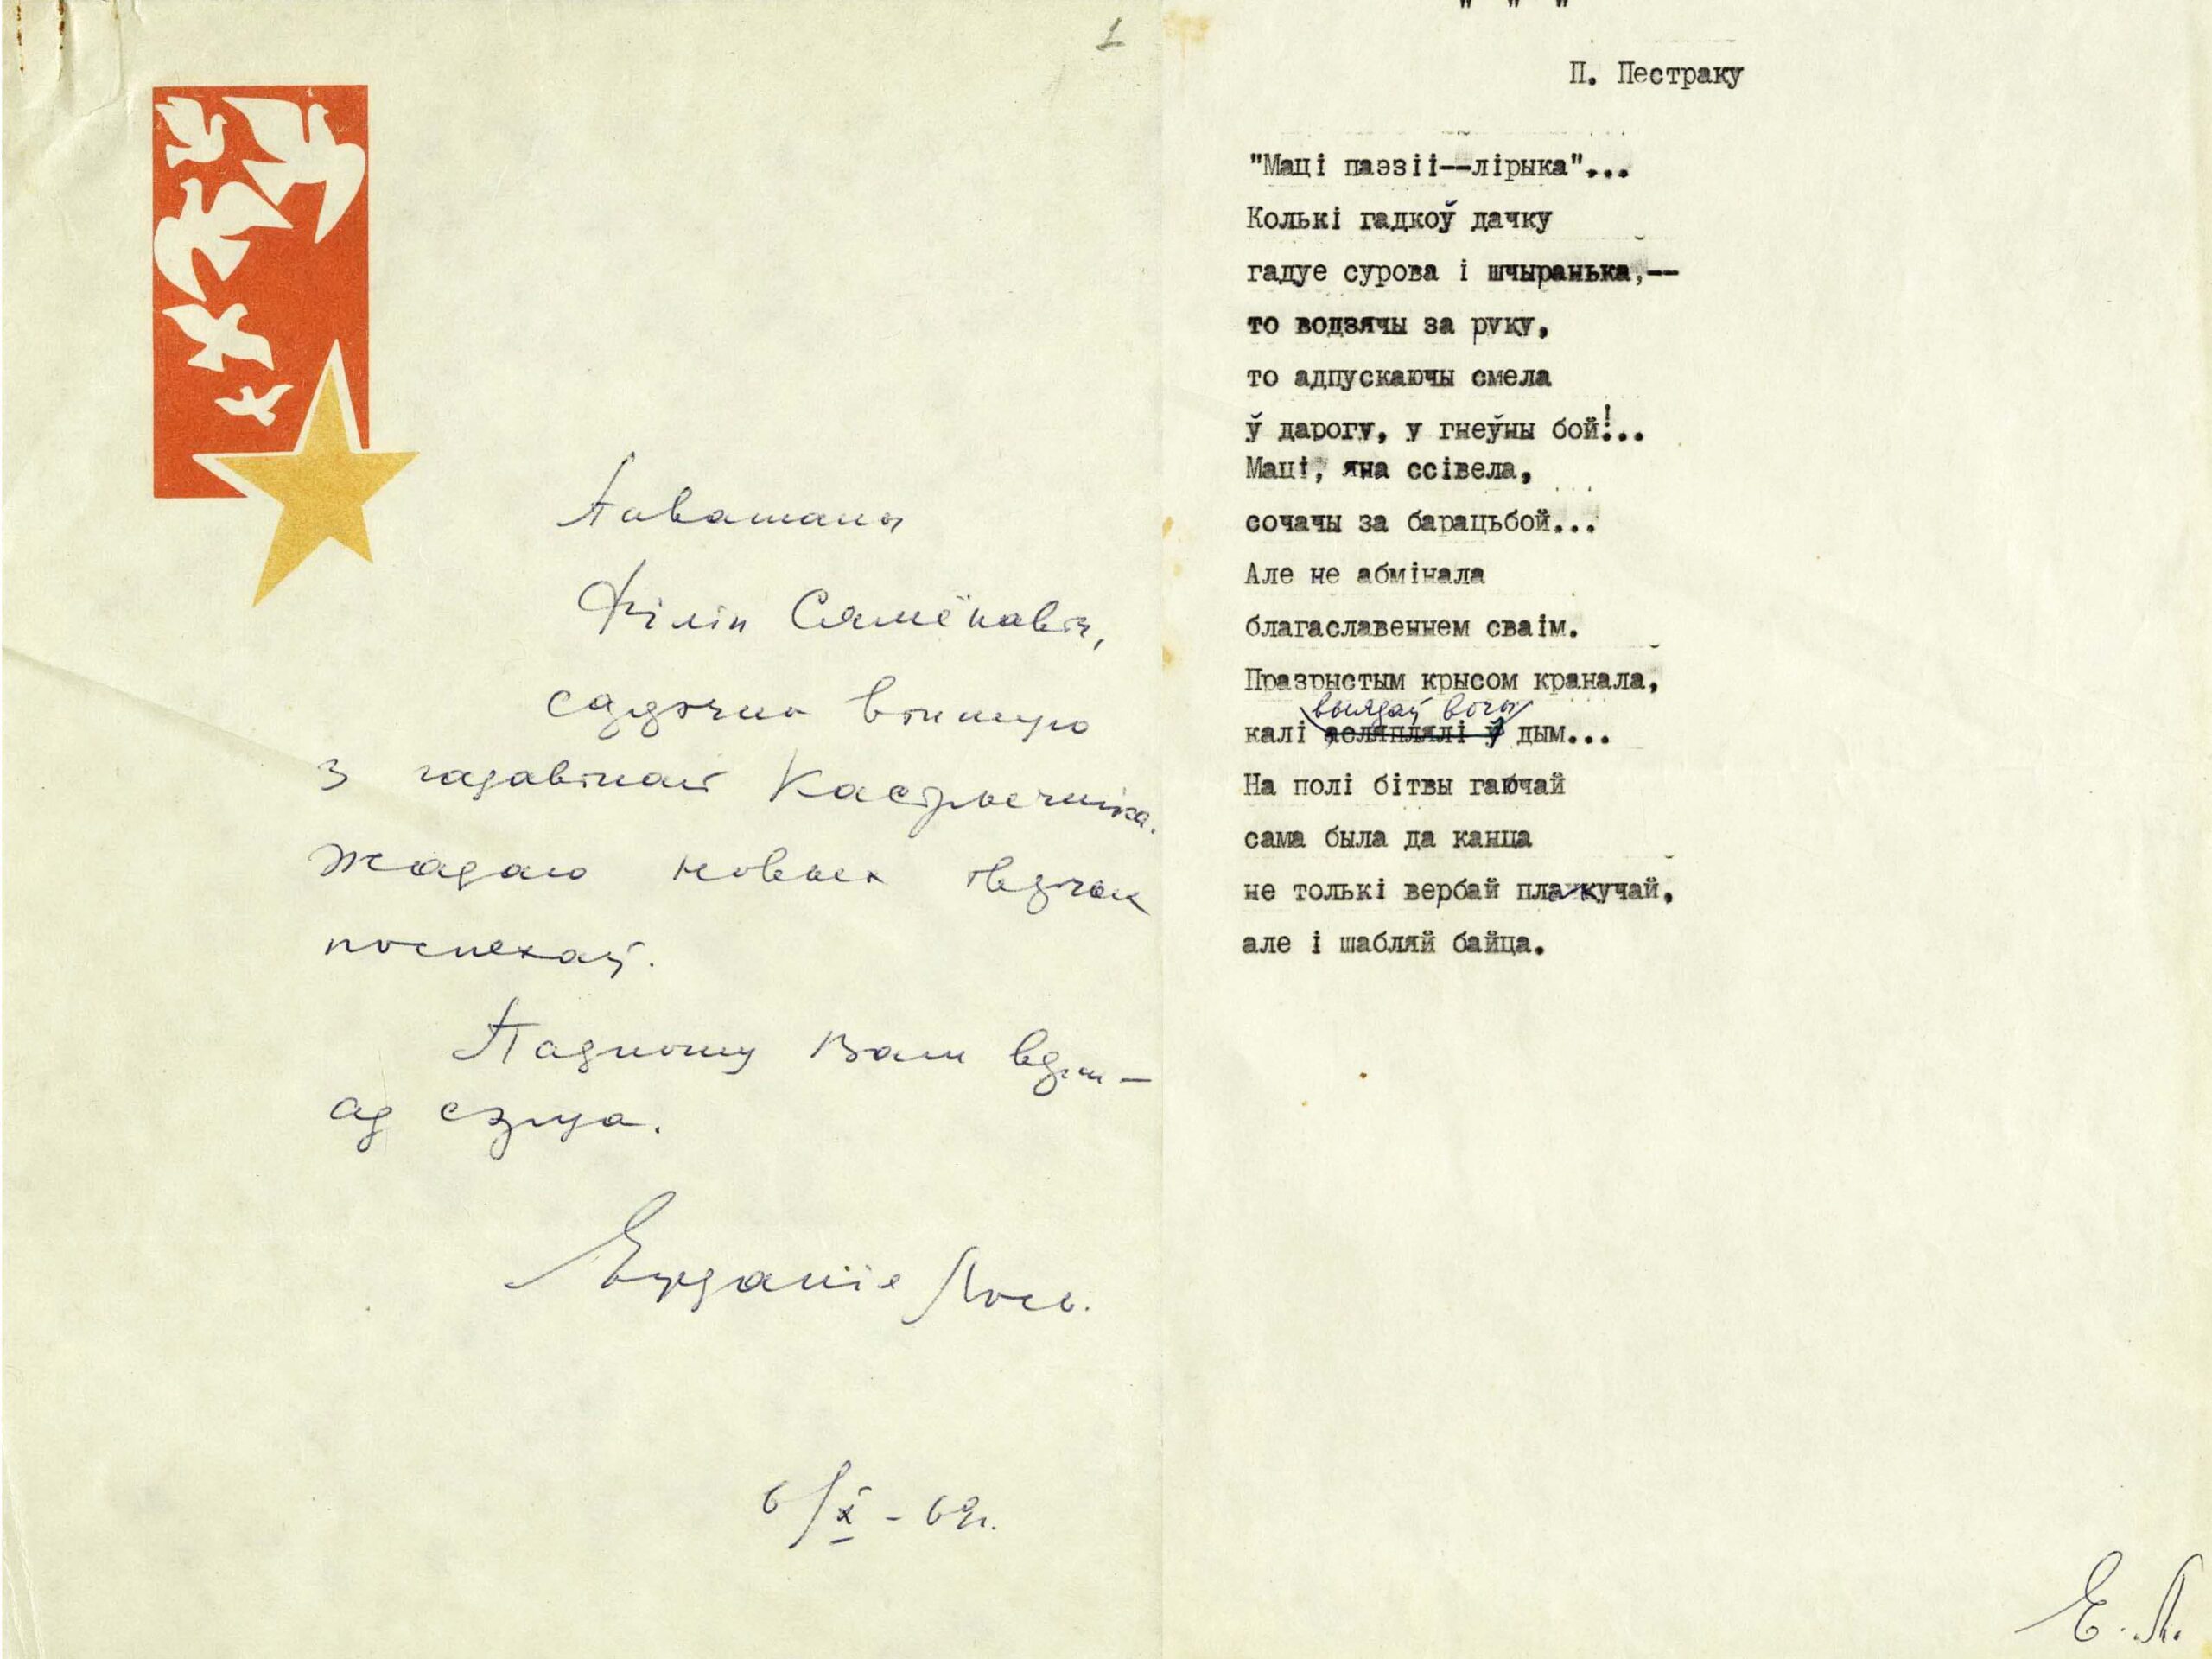 1
Паважаны
Філіп Сямёнавіч,
сардэчна віншую
з гадавінай Кастрычніка.
Жадаю новых творчых
поспехаў.
Падпошу Вам верш —
ад сэрца.
Еўданія Лось.
6/X - 69г.
" " "
П. Пестраку
"Маці паэзіі--лірыка"...
Колькі гадкоў дачку
гадуе сурова і шчыранька,--
то водзячы за руку,
то адпускаючы смела
ў дарогу, у гнеўны бой!..
Маці, яна ссівела,
сочачы за барацьбой...
Але не абмінала
благаславеннем сваім.
Празрыстым крысом кранала,
выядаў вочы
калі дым...
На полі бітвы гаючай
сама была да канца
не толькі вербай плакучай,
але і шабляй байца.
Е. Л.